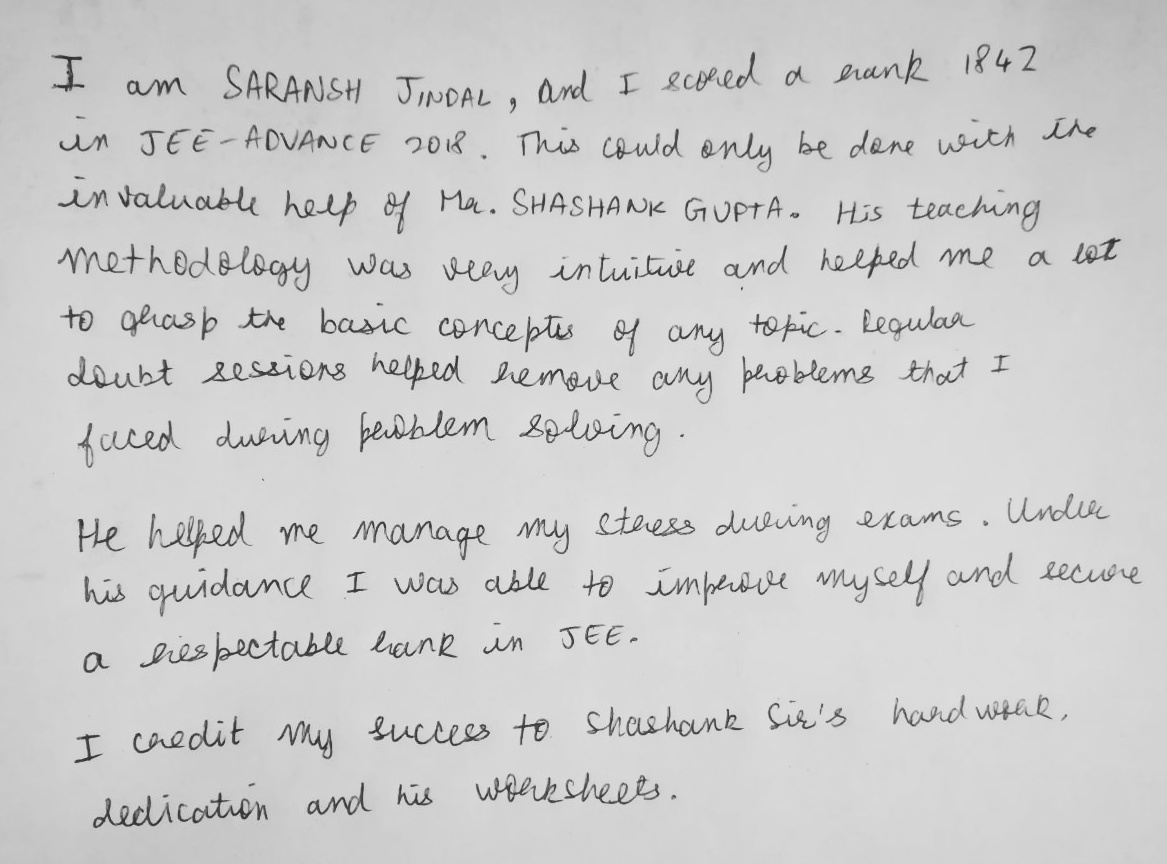 I am SARANSH JINDAL, and I scored a rank 1842
in JEE-ADVANCE 2018. This could only be done with the
invaluable help of Mr. SHASHANK GUPTA. His teaching
methodology was very intuitive and helped me a lot
to grasp the basic concepts of any topic. Regular
doubt sessions helped remove any problems that I
faced during problem solving.
He helped me manage my stress during exams. Under
his guidance I was able to improve myself and secure
a respectable rank in JEE.
I credit my success to Shashank Sir's hard work,
dedication and his worksheets.